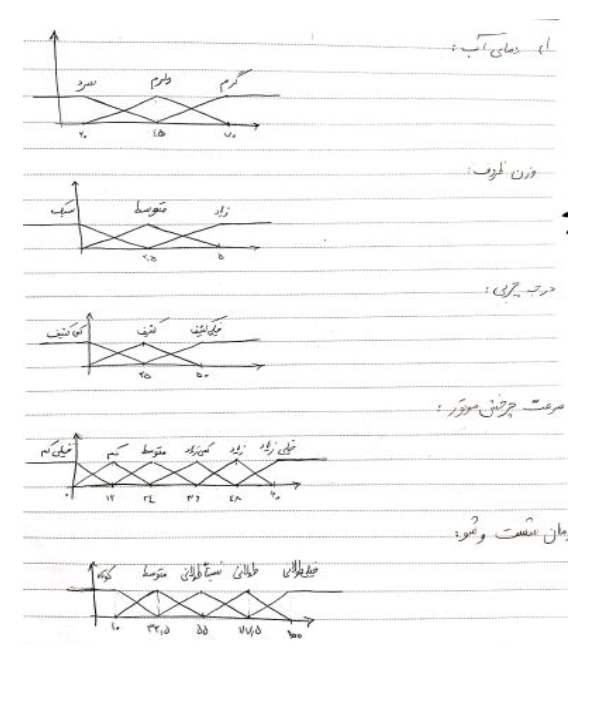 ۱) دمای آب :
سرد ولرم گرم
۲۰ ۴۵ ۷۰
وزن ظروف :
سبک متوسط زیاد
۲,۵ ۵
درجه چربی :
کمی کثیف کثیف خیلی کثیف
۲۵ ۵۰
سرعت چرخش موتور :
خیلی کم کم متوسط کمی زیاد زیاد خیلی زیاد
۰ ۱۲ ۲۴ ۳۶ ۴۸ ۶۰
زمان شست و شو :
کوتاه متوسط نسبتاً طولانی طولانی خیلی طولانی
۱۰ ۳۲,۵ ۵۵ ۷۷,۵ ۱۰۰